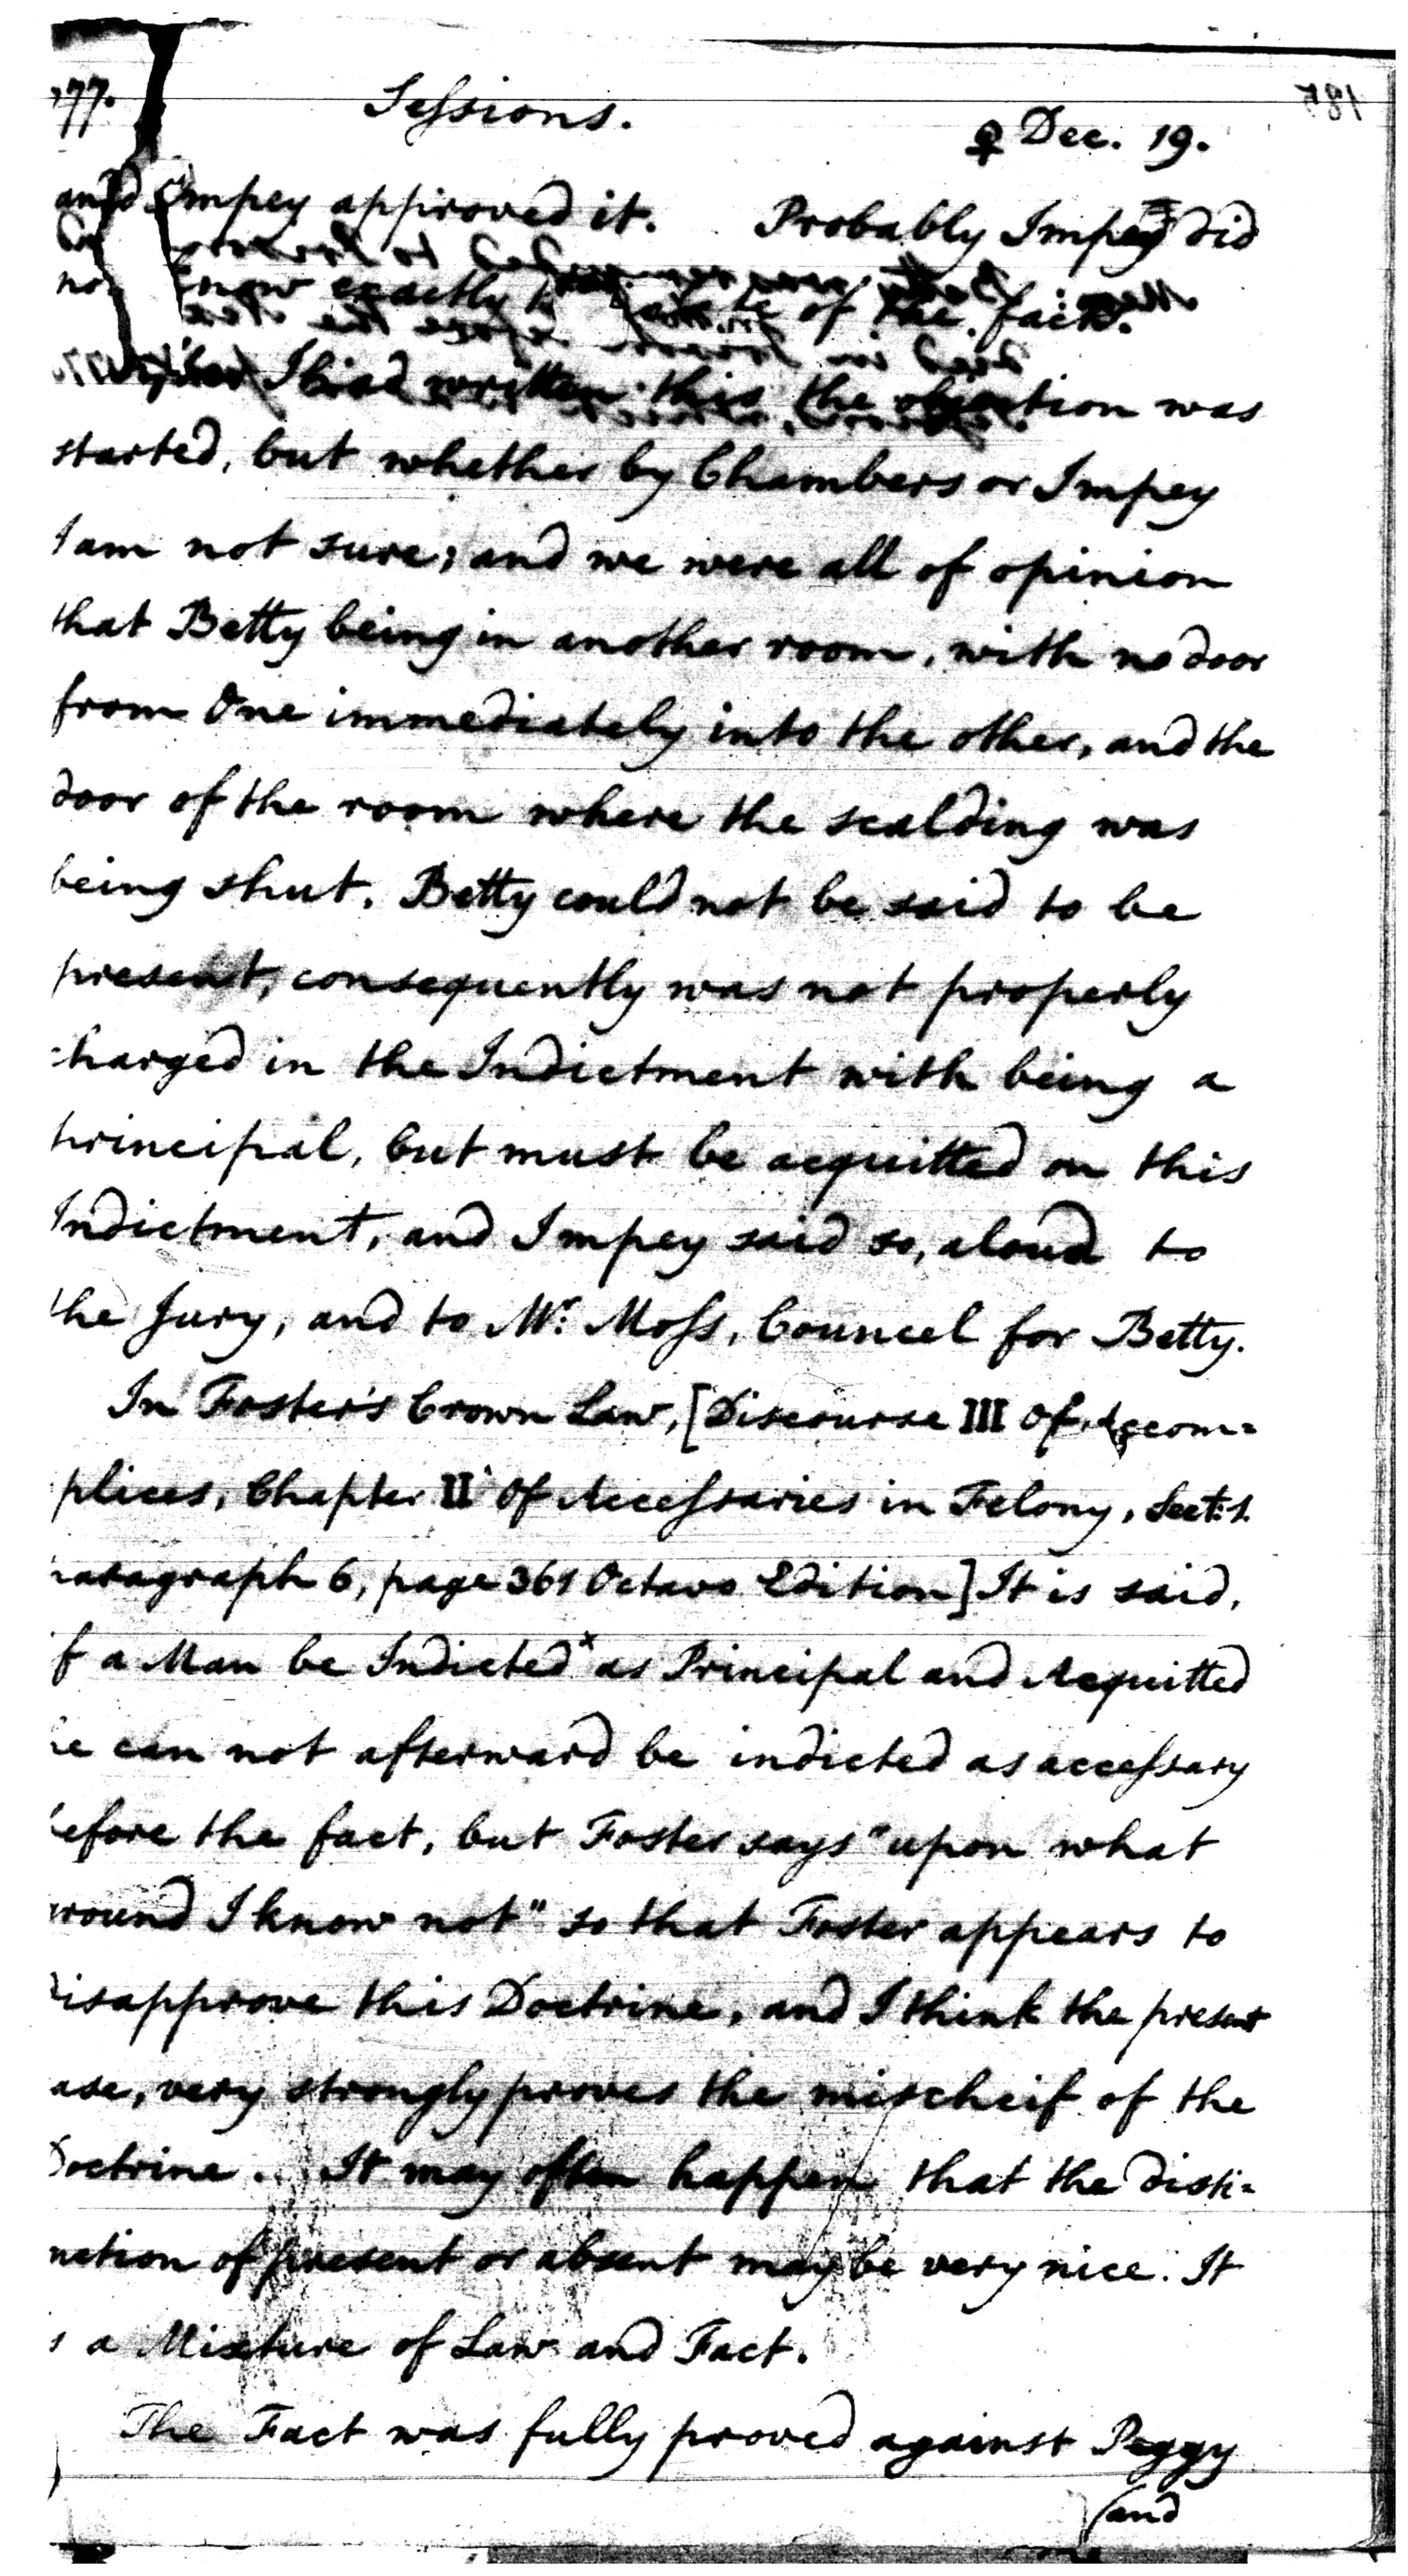 77. Sessions. ♀ Dec. 19.
and Impey approved it. Probably Impey did
not know exactly the state of the fact.
After I had written this the objection was
started, but whether by Chambers or Impey
I am not sure; and we were all of opinion
that Betty being in another room, with no door
from One immediately into the other, and the
door of the room where the scalding was
being shut, Betty could not be said to be
present, consequently was not properly
charged in the Indictment with being a
principal, but must be acquitted on this
Indictment, and Impey said so, aloud to
the Jury, and to Mr. Moss, Councel for Betty.
In Foster's Crown Law, [Discourse III Of Accom=
plices, Chapter II Of Accessaries in Felony, Sect: 1.
paragraph 6, page 361 Octavo Edition] It is said,
if a Man be Indicted* as Principal and Acquitted
he can not afterward be indicted as accessary
before the fact, but Foster says "upon what
ground I know not" so that Foster appears to
disapprove this Doctrine, and I think the present
case, very strongly proves the mischeif of the
Doctrine. It may often happen that the disti=
nction of present or absent may be very nice. It
is a Mixture of Law and Fact.
The Fact was fully proved against Peggy
(and